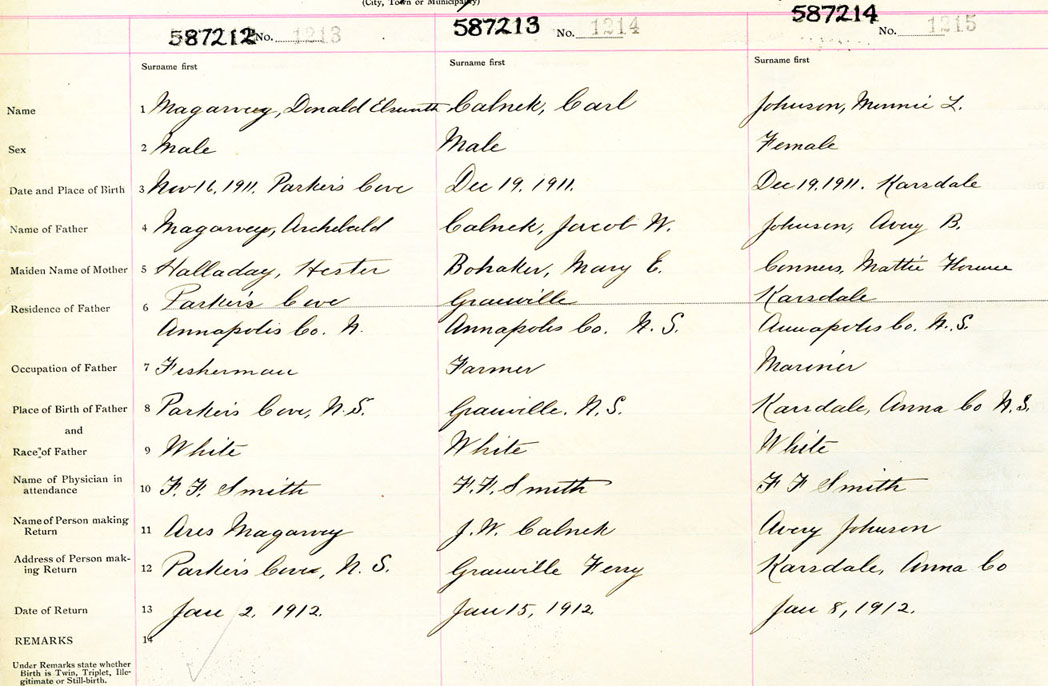 (City, Town or Municipality)
587212 No. 1213 587213 No. 1214 587214 No. 1215
Surname first Surname first Surname first
Name 1 Magarvey, Donald Elsworth Calnek, Carl Johnson, Minnie L.
Sex 2 Male Male Female
Date and Place of Birth 3 Nov 16, 1911. Parkers Cove Dec 19, 1911. Dec 19, 1911. Karsdale
Name of Father 4 Magarvey, Archibald Calnek, Jacob W. Johnson, Avery B.
Maiden Name of Mother 5 Halladay, Hester Bohaker, Mary E. Conners, Mattie Florence
Residence of Father 6 Parker's Cove Granville Karsdale
Annapolis Co. N. Annapolis Co. N.S. Annapolis Co. N.S.
Occupation of Father 7 Fisherman Farmer Mariner
Place of Birth of Father 8 Parker's Cove, N.S. Granville. N.S. Karsdale, Anna Co N.S.
and
Race of Father 9 White White White
Name of Physician in
attendance 10 F. F. Smith F.F. Smith F F Smith
Name of Person making
Return 11 Magarvey J.W. Calnek Avery Johnson
Address of Person mak-
ing Return 12 Parker's Cove, N.S. Granville Ferry Karsdale, Anna Co
Date of Return 13 Jan 2, 1912. Jan 15, 1912. Jan 8, 1912.
REMARKS 14
Under Remarks state whether
Birth is Twin, Triplet, Ille-
gitimate or Still-birth.